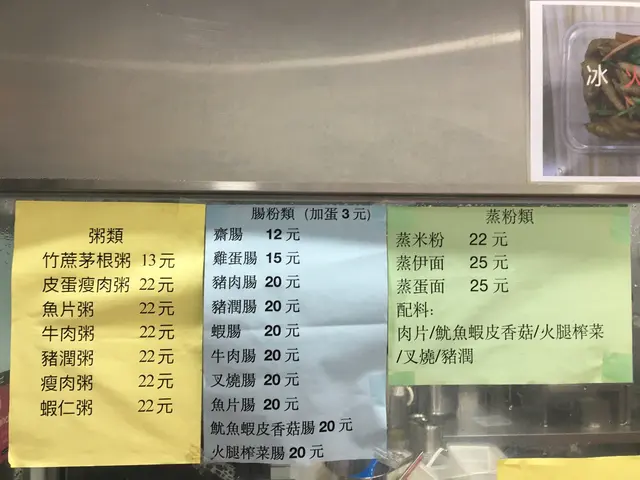 冰
粥類
竹蔗茅根粥 13元
皮蛋瘦肉粥 22元
魚片粥 22元
牛肉粥 22元
豬潤粥 22元
瘦肉粥 22元
蝦仁粥 22元
腸粉類 (加蛋 3 元)
齋腸 12 元
雞蛋腸 15 元
豬肉腸 20 元
豬潤腸 20 元
蝦腸 20 元
牛肉腸 20 元
叉燒腸 20 元
魚片腸 20 元
魷魚蝦皮香菇腸 20 元
火腿榨菜腸 20 元
蒸粉類
蒸米粉 22 元
蒸伊面 25 元
蒸蛋面 25 元
配料:
肉片/魷魚蝦皮香菇/火腿榨菜
/叉燒/豬潤